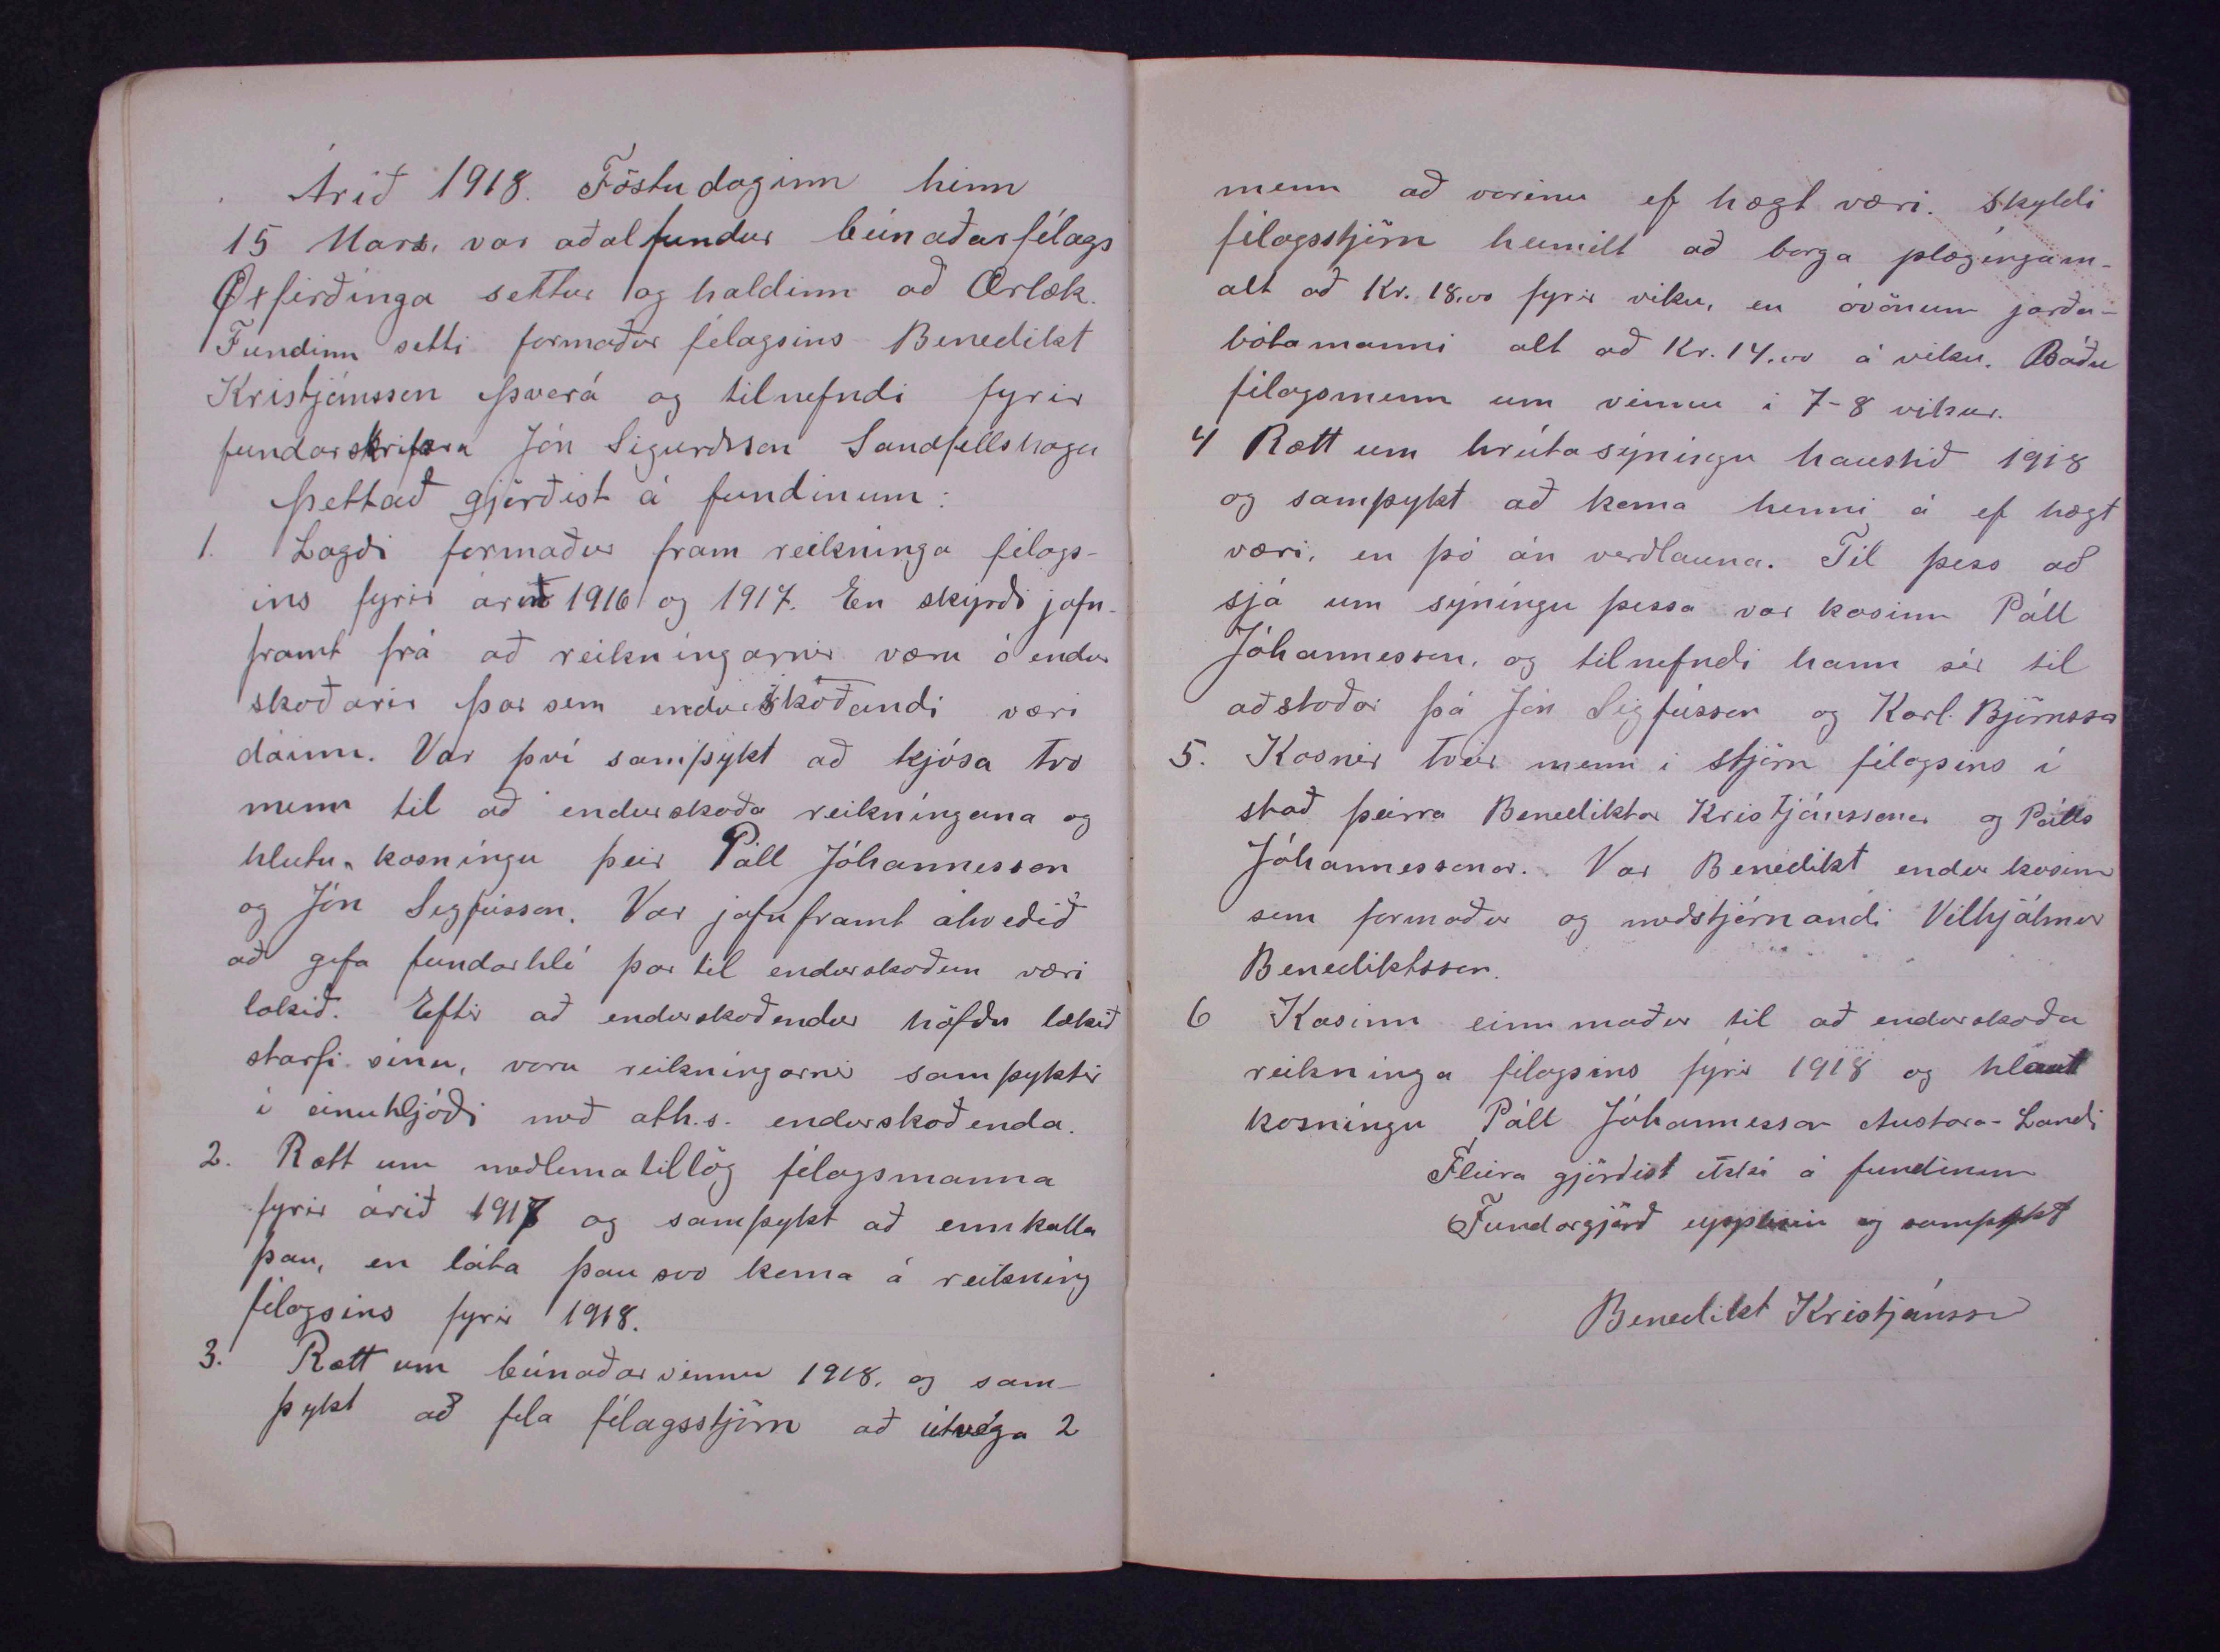 Árið 1918. Föstudaginn hinn
15 Mars. var aðalfundur búnaðarfélags
Öxfirðinga settur og haldinn að Ærlæk.
Fundinn setti formaður félagsins Benedikt
Kristjánsson Þverá og tilnefndi fyrir
fundarskrifara Jón Sigurðsson Sandfellshaga
Þettað gjörðist á fundinum:
1. Lagði formaður fram reikninga félags-
ins fyrir árin 1916 og 1917. En skýrði jafn-
framt frá að reikningarnir væru óendur
skoðarir þar sem endurskoðandi væri
dáinn. Var því samþykt að kjósa tvo
menn til að endurskoða reikníngana og
hlutu kosníngu þeir Páll Jóhannesson
og Jón Sigfússon. Var jafnframt ákveðið
að gefa fundarhlé þar til endurskoðun væri
lokið. Eftir að endurskoðendur höfðu lokið
starfi sínu, voru reikníngarnir samþyktir
í einuhljóði með ath.s. endurskoðenda.
2. Rætt um meðlimatillög félagsmanna
fyrir árið 1917 og samþykt að innkalla
þau, en láta þau svo koma á reikníng
félagsins fyrir 1918.
3. Rætt um búnaðarvinnu 1918. og sam-
þykt að fela félagsstjórn að útvega 2
menn að vorinu ef hægt væri. Skyldi
félagsstjórn heimilt að borga plæginga m-
alt að Kr. 18.00 fyrir viku, en óvönum jarða-
bótamanni alt að Kr. 14.00 á viku. Báðu
félagsmenn um vinnu í 7-8 vikur.
4 Rætt um hrútasýníngu haustið 1918
og samþykt að koma henni á ef hægt
væri, en þó án verðlauna. Til þess að
sjá um sýníngu þessa var kosinn Páll
Jóhannesson, og tilnefndi hann sér til
aðstoðar þá Jón Sigfússon og Karl Björnsson
5. Kosnir tveir menn í stjórn félagsins í
stað þeirra Benediktar Kristjánssonar og Páls
Jóhannessonar. Var Benedikt endurkosinn
sem formaður og meðstjórnandi Vilhjálmur
Benediktsson.
6 Kosinn einn maður til að endurskoða
reikninga félagsins fyrir 1918 og hlaut
kosníngu Páll Jóhannesson Austara-Landi
Fleira gjörðist ekki á fundinum
Fundargjörð upplesin og samþykt
Benedikt Kristjánsson